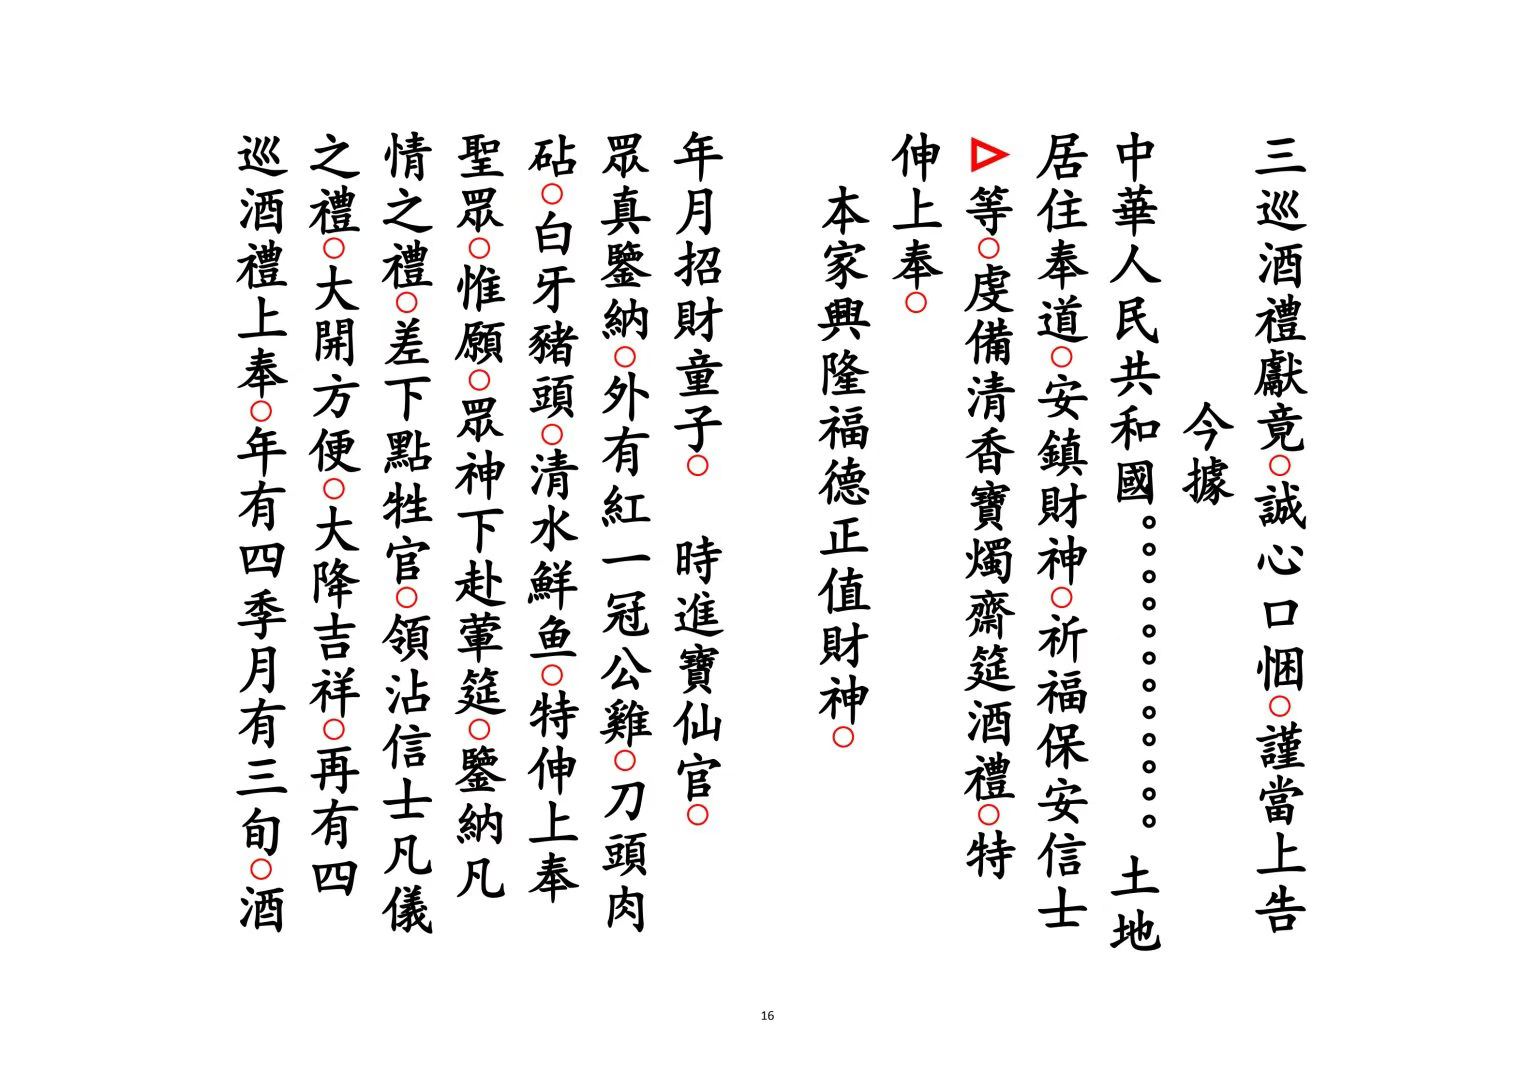 三巡酒禮獻竟○誠心口悃○謹當上告
今據
中華人民共和國。。。。。。。。。。。。土地
居住奉道○安鎮財神○祈福保安信士
▷等○虔備清香寶燭齋筵酒禮○特
伸上奉○
本家興隆福德正值財神○
年月招財童子○　時進寶仙官○
眾真鑒納○外有紅一冠公雞○刀頭肉
砧○白牙豬頭○清水鮮鱼○特伸上奉
聖眾○惟願○眾神下赴葷筵○鑒納凡
情之禮○差下點牲官○領沾信士凡儀
之禮○大開方便○大降吉祥○再有四
巡酒禮上奉○年有四季月有三旬○酒
16